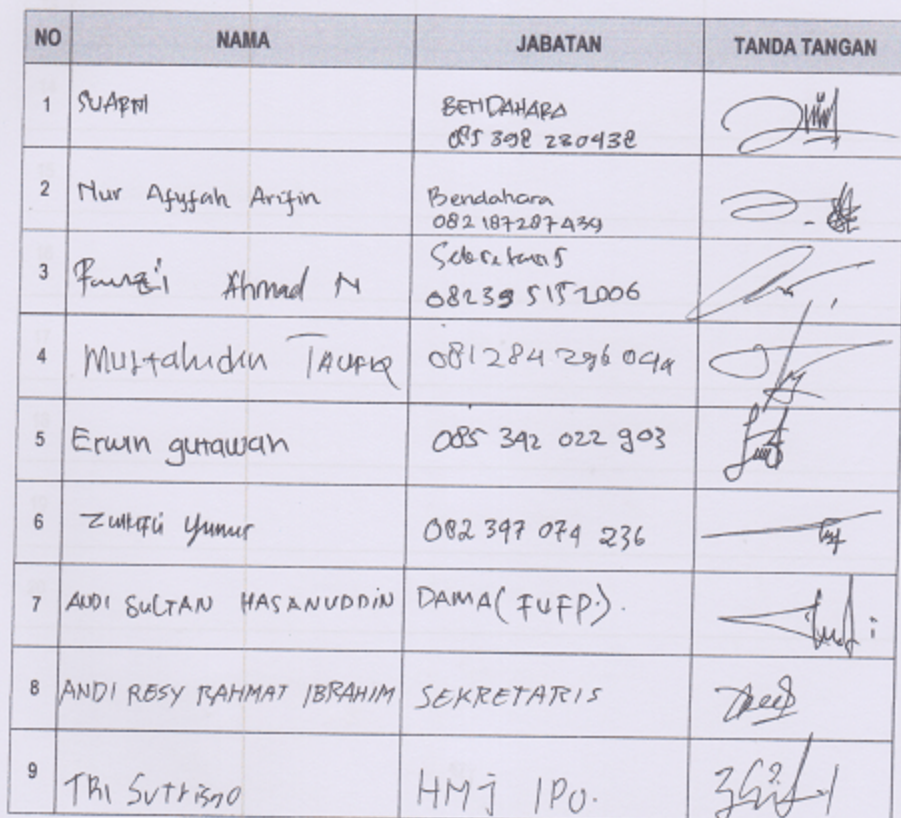 NO NAMA JABATAN TANDA TANGAN
1 SUARNI BENDAHARA
085 398 230438
2 Nur Afyfah Arifin Bendahara
082187287439
3 Fauzi Ahmad N Sekretaris
08239 515 2006
4 Mustahidin TAUFIQ 081284296
5 Erwin gunawan 085 342 022 903
6 Yunus 082 397 074 236
7 ANDI SULTAN HASANUDDIN DAMA (FUFP).
8 ANDI RESY RAHMAT IBRAHIM SEKRETARIS
9 TRI Sutrisno HMJ IPO.